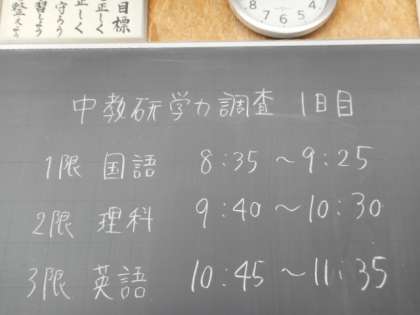 目標
正しく
守ろう
正しく
習しよう
整えよう
8 7 6 5 4
中教研学力調査 1日目
1限 国語 8:35～9:25
2限 理科 9:40～10:30
3限 英語 10:45～11:35